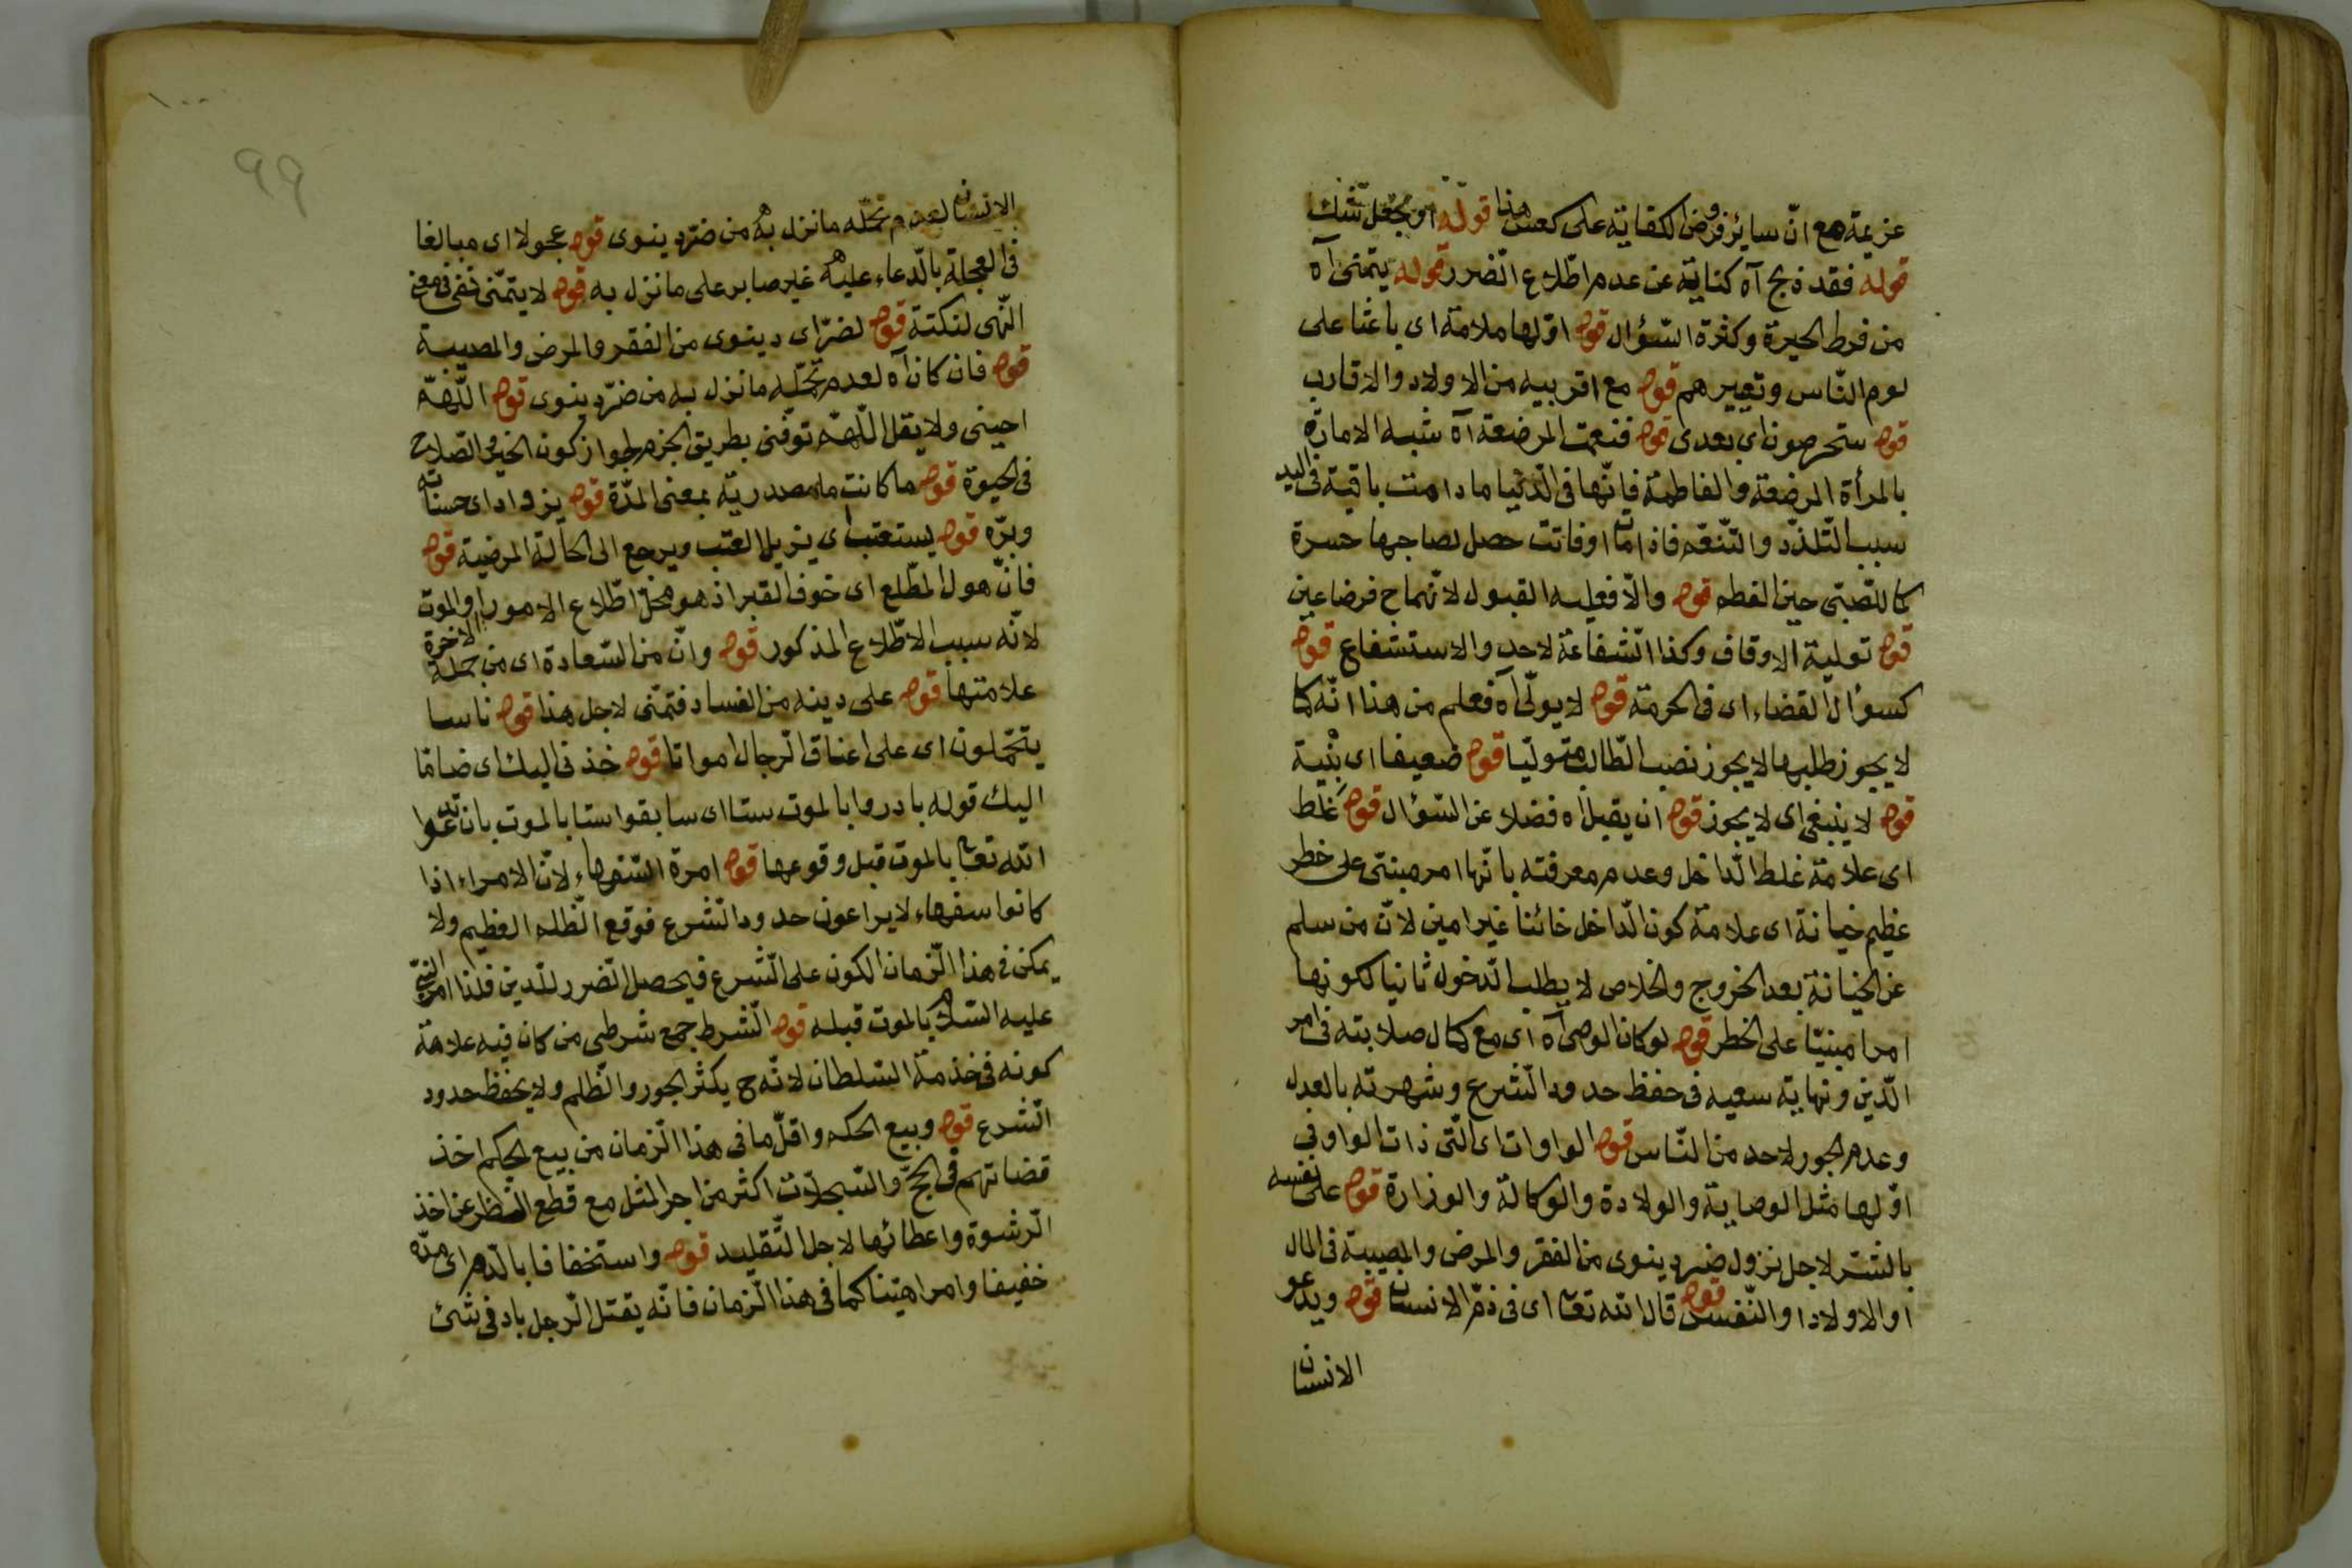 عزيمة مع انّ سائر فروض الكفاية على كعس هذا قوله او يجعل شك
قوله فقد ذبح آه كناية عن عدم اطّلاع الضرر قوله يتمنى آه
من فرط الحيرة وكثرة السّؤال قوله اوّلها ملامة اى باعثا على
لوم النّاس وتعييرهم قوله مع اقربيه من الاولاد والاقارب
قوله ستحرصون اى بعدى قوله فنعمت المرضعة آه شبه الامارة
بالمرأة المرضعة والفاطمة فانّها فى الدّنيا ما دامت باقية فى اليد
سبب التّلذّذ والتّنعّم فاذا مات او فاتت حصل لصاحبها حسرة
كما للصّبىّ حين الفطم قوله والّا فعليه القبول لانّهما ح فرضا عين
قوله تولية الاوقاف وكذا الشّفاعة لاحد والاستشفاع قوله
كسؤال القضاء اى فى الحرمة قوله لا يولّى آه فعلم من هذا انّه كما
لا يجوز طلبها لا يجوز نصب الطّالب متولّيا قوله ضعيفا اى بنية
قوله لا ينبغى اى لا يجوز قوله ان يقبل آه فضلا عن السّؤال قوله غلط
اى علامة غلط الدّاخل وعدم معرفته بانّها امر مبنىّ على خطر
عظيم خيانة اى علامة كون الدّاخل خائنا غير امين لانّ من سلم
عن الخيانة بعد الخروج والخلاص لا يطلب الدّخول ثانيا لكونها
امرا مبنيّا على الخطر قوله لو كان الوصى آه اى مع كمال صلابته فى امر
الدّين ونهاية سعيه فى حفظ حدود الشّرع وشهرته بالعدل
وعدم الجور لاحد من النّاس قوله الواوات اى الّتى ذات الواو فى
اوّلها مثل الوصاية والولادة والوكالة والوزارة قوله على نفسه
بالشّرّ لاجل نزول ضرر دينوى من الفقر والمرض والمصيبة فى المال
او الاولاد او النّفس قوله قال الله تعا اى فى ذمّ الانسان قوله ويدعو
الانسان
١٠٠
99
الانسان لعدم تحمّله ما نزل به من ضرّ دينوى قوله عجولا اى مبالغا
فى العجلة بالدّعاء عليه غير صابر على ما نزل به قوله لا يتمنّى نفى فى معنى
النّهى لنكتة قوله لضرّ اى دينوى من الفقر والمرض والمصيبة
قوله فان كان آه لعدم تحمّله ما نزل به من ضرّ دينوى قوله اللّهمّ
احينى ولا يقل اللّهمّ توفّنى بطريق الجزم لجواز كون الخير والصّلاح
فى الحيوة قوله ما كانت ما مصدريّة بمعنى المدّة قوله يزداد اى حسناته
وبرّه قوله يستعتب اى يزيل العتب ويرجع الى الحالة المرضية قوله
فانّ هول المطّلع اى خوف القبر اذ هو محلّ اطّلاع الامور الاخرة او الموت
لانّه سبب الاطّلاع المذكور قوله وانّ من السّعادة اى من جملة
علامتها قوله على دينه من الفساد فتمنّى لاجل هذا قوله ناسا
يتحمّلون اى على اعناق الرّجال امواتا قوله خذنى اليك اى ضامّا
اليك قوله بادروا بالموت ستا اى سابقوا ستا بالموت بان تدعوا
الله تعا بالموت قبل وقوعها قوله امرة السّفهاء لانّ الامراء اذا
كانوا سفهاء لا يراعون حدود الشّرع فوقع الظّلم العظيم ولا
يمكن فى هذا الزّمان الكون على الشّرع فيحصل الضّرر للدّين فلذا امر النّبىّ
عليه السّلام بالموت قبله قوله الشّرط جمع شرطى من كان فيه علامة
كونه فى خذمة السّلطان لانّه ح يكثر الجور والظّلم ولا يحفظ حدود
الشّرع قوله وبيع الحكم واقلّ ما فى هذا الزّمان من بيع الحكم اخذ
قضاتهم فى الحجّ والسّجلّات اكثر من اجر المثل مع قطع النّظر عن اخذ
الرّشوة واعطائها لاجل التّقليد قوله واستخفافا بالدّم اى عدّه
خفيفا وامرا هيّنا كما فى هذا الزّمان فانّه يقتل الرّجل بادنى شئ